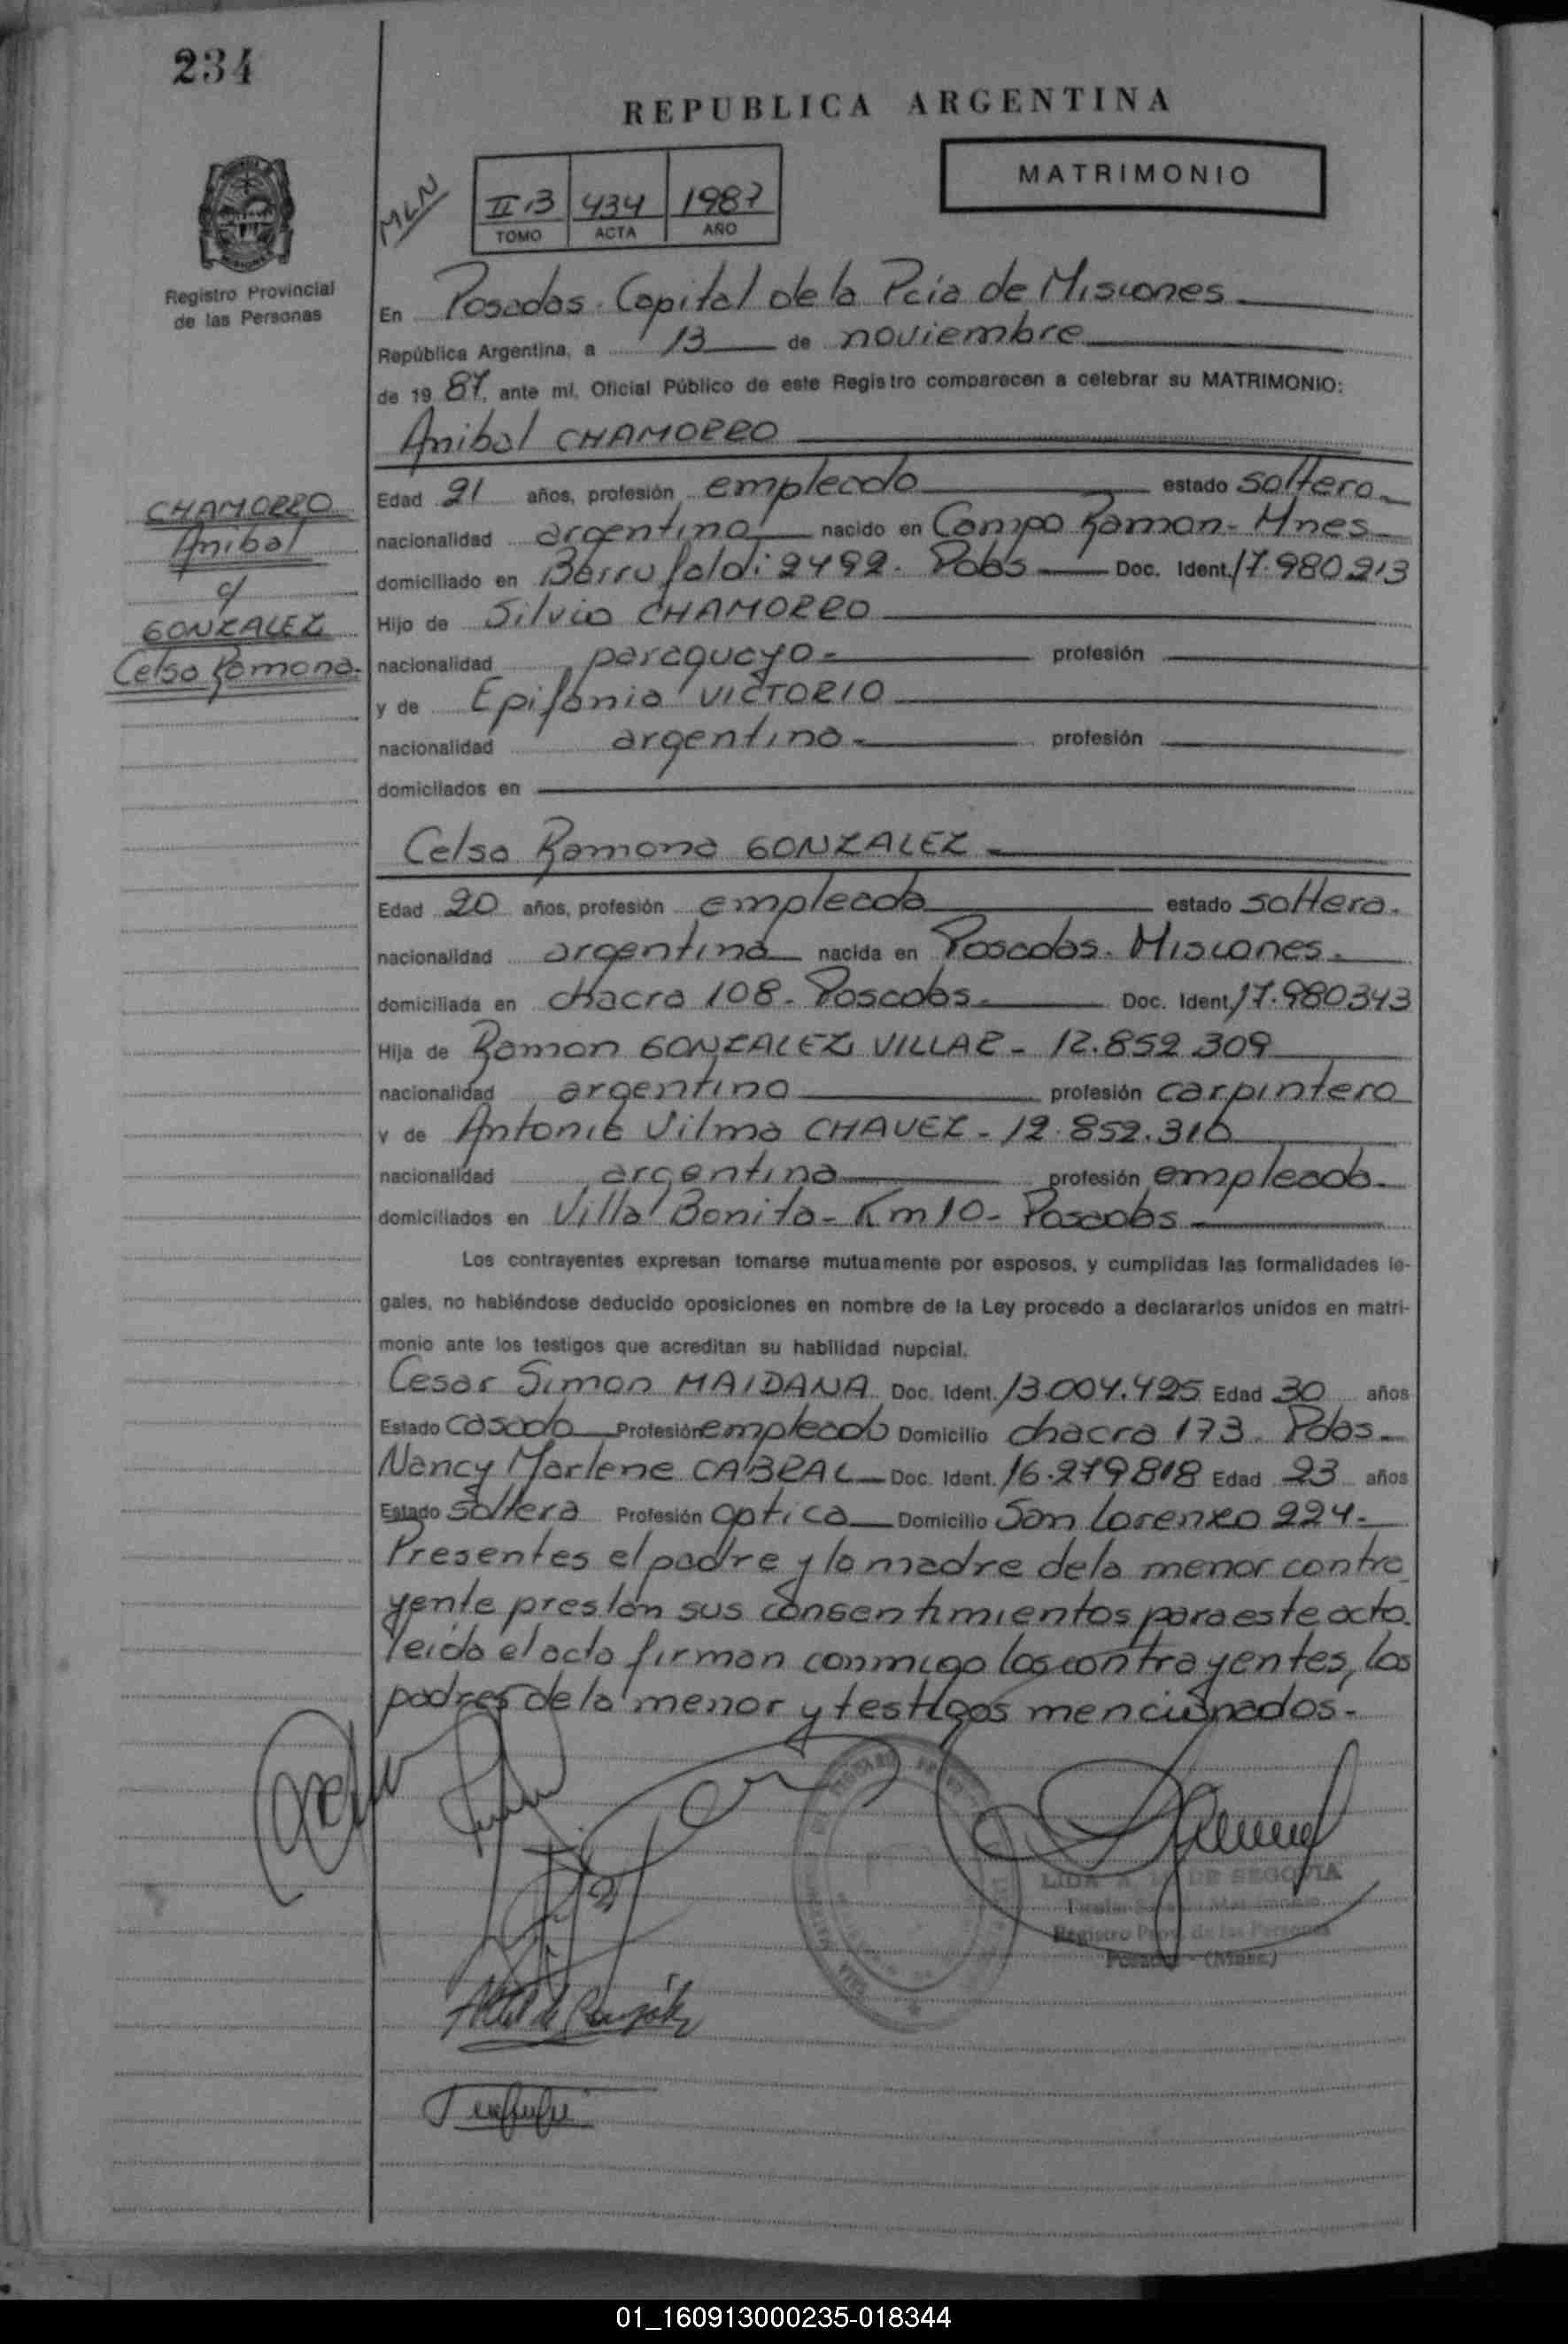 234
REPUBLICA ARGENTINA
MATRIMONIO
MLN
II.B 434 1987
TOMO ACTA AÑO
Registro Provincial
de las Personas
En Posadas. Capital de la Pcia de Misiones
República Argentina, a 13 de noviembre
de 19 87, ante mi, Oficial Público de este Registro comparecen a celebrar su MATRIMONIO:
Anibal CHAMORRO
CHAMORRO
Anibal
c/
GONZALEZ
Celsa Ramona.
Edad 21 años, profesión empleado estado soltero
nacionalidad argentina nacido en Campo Ramon - Mnes
domiciliado en Barrufaldi 2492. Pdas Doc. Ident. 17.980213
Hijo de Silvio CHAMORRO
nacionalidad paraguayo profesión
y de Epifania VICTORIO
nacionalidad argentina profesión
domicilados en
Celsa Ramona GONZALEZ
Edad 20 años, profesión empleada estado soltera.
nacionalidad argentina nacida en Posadas. Misiones.
domiciliada en chacra 108. Posadas Doc. Ident. 17.980343
Hija de Ramon GONZALEZ VILLAR - 12.852.309
nacionalidad argentino profesión carpintero
y de Antonia Vilma CHAVEZ - 12.852.310
nacionalidad argentina profesión empleada
domiciliados en Villa Bonita - Km 10 - Posadas
Los contrayentes expresan tomarse mutuamente por esposos, y cumplidas las formalidades le-
gales, no habiéndose deducido oposiciones en nombre de la Ley procedo a declararlos unidos en matri-
monio ante los testigos que acreditan su habilidad nupcial.
Cesar Simon MAIDANA Doc. Ident. 13.004.425 Edad 30 años
Estado casado Profesión empleado Domicilio chacra 173. Pdas.
Nancy Marlene CABRAL Doc. Ident. 16.279818 Edad 23 años
Estado soltera Profesión optica Domicilio San Lorenzo 224.
Presentes el padre y la madre de la menor contra
yente prestan sus consentimientos para este acto.
leida el acta firman conmigo los contrayentes, los
padres de la menor y testigos mencionados.
DE SEGOVIA
Registro Prov. de las Personas
Posadas - (Mnes.)
01_160913000235-018344